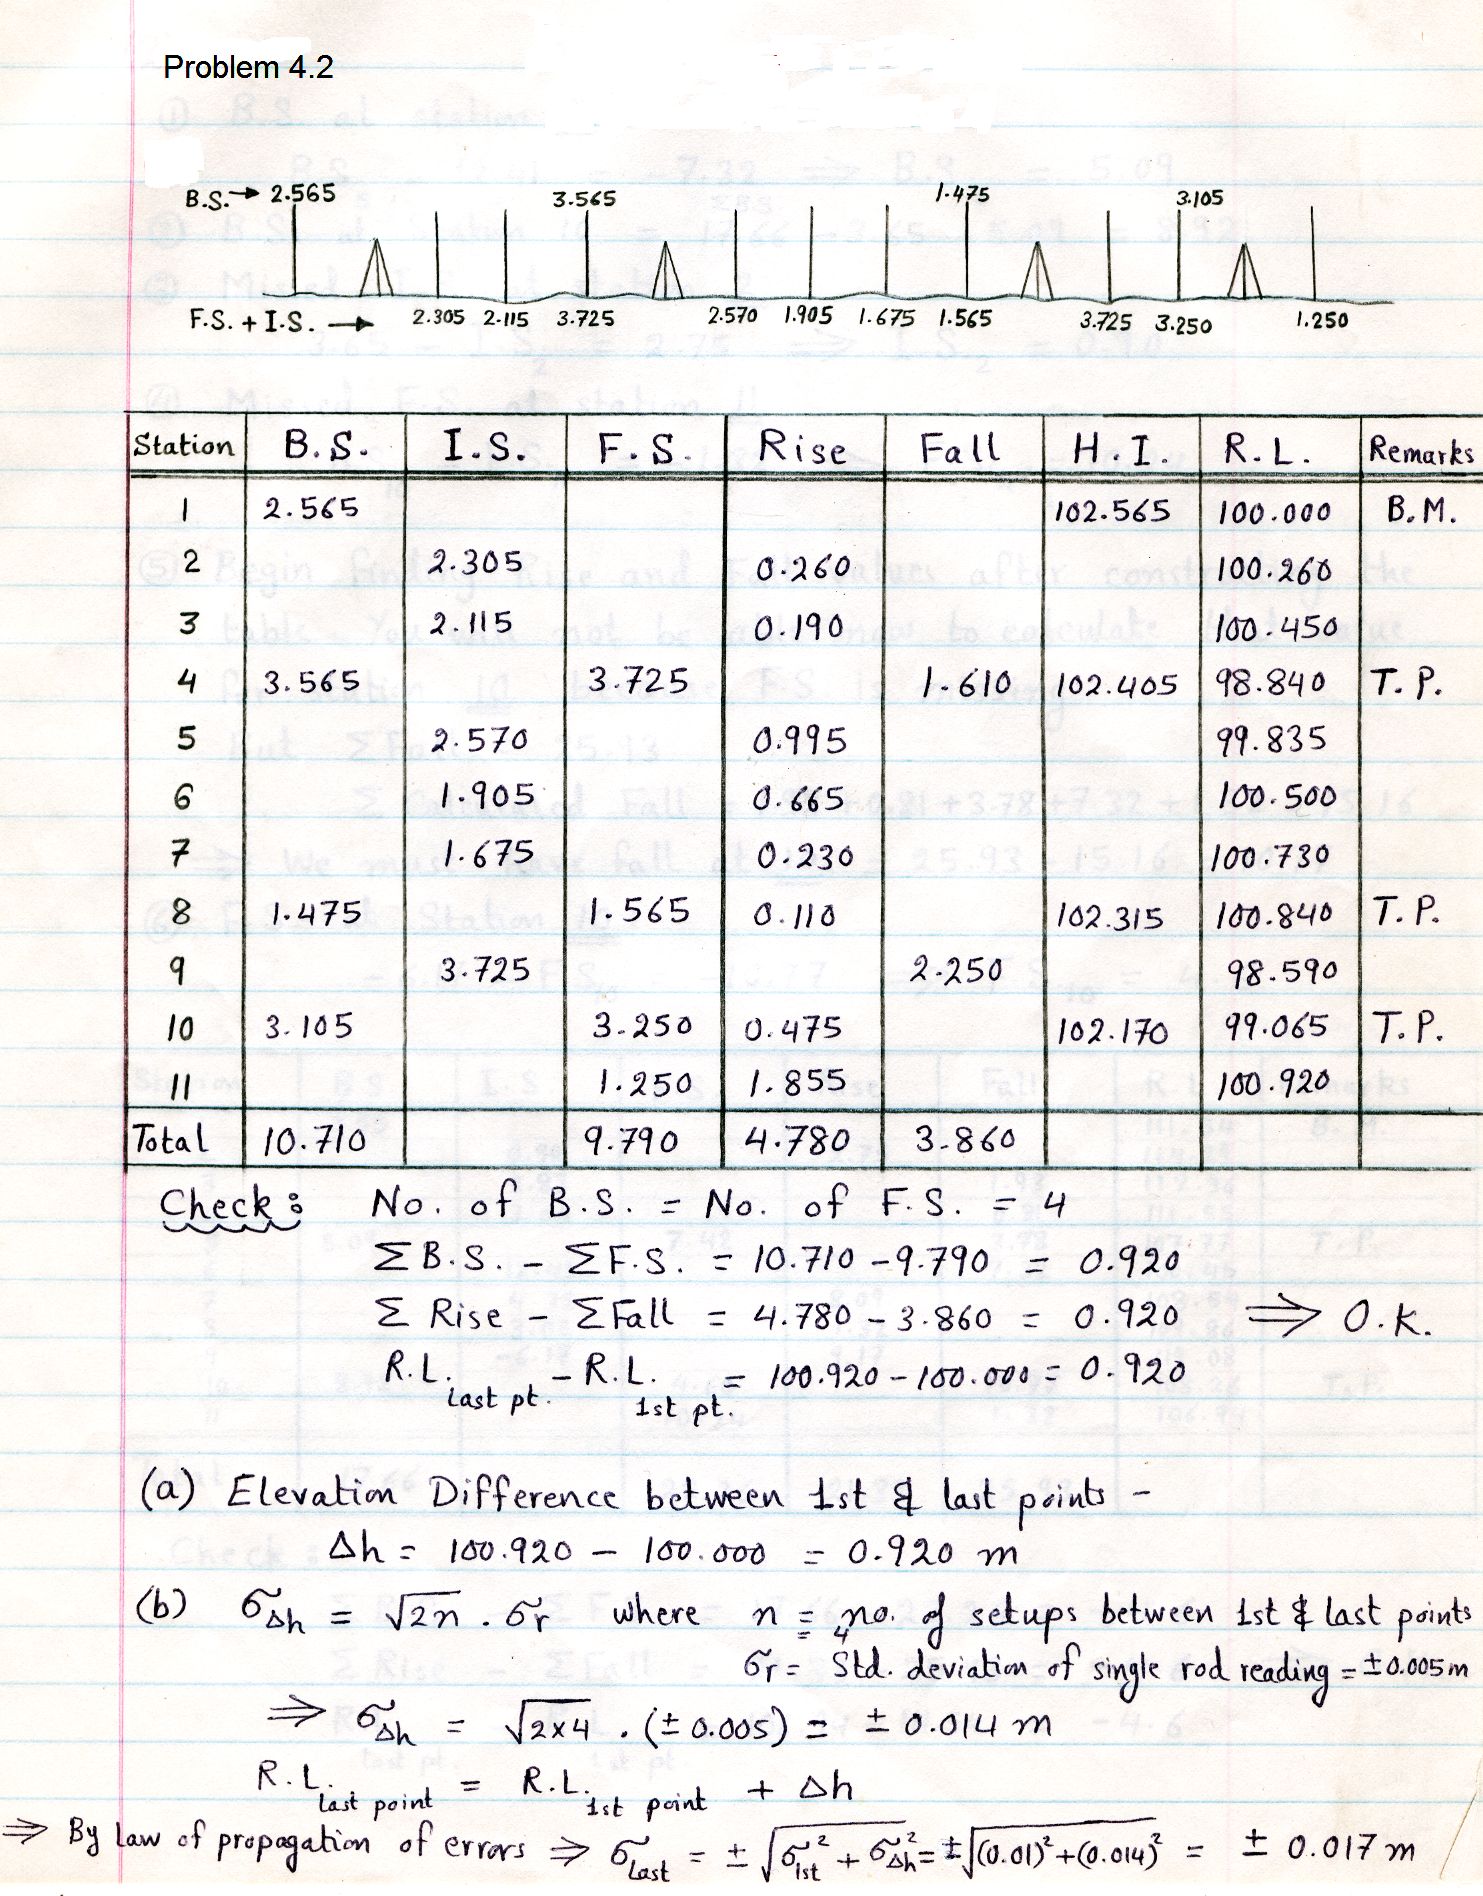 Problem 4.2
B.S. → 2.565 3.565 1.475 3.105
F.S. + I.S. → 2.305 2.115 3.725 2.570 1.905 1.675 1.565 3.725 3.250 1.250
Station B.S. I.S. F.S. Rise Fall H.I. R.L. Remarks
1 2.565 102.565 100.000 B.M.
2 2.305 0.260 100.260
3 2.115 0.190 100.450
4 3.565 3.725 1.610 102.405 98.840 T.P.
5 2.570 0.995 99.835
6 1.905 0.665 100.500
7 1.675 0.230 100.730
8 1.475 1.565 0.110 102.315 100.840 T.P.
9 3.725 2.250 98.590
10 3.105 3.250 0.475 102.170 99.065 T.P.
11 1.250 1.855 100.920
Total 10.710 9.790 4.780 3.860
Check: No. of B.S. = No. of F.S. = 4
ΣB.S. - ΣF.S. = 10.710 - 9.790 = 0.920
Σ Rise - ΣFall = 4.780 - 3.860 = 0.920 ⇒ O.K.
R.L. last pt. - R.L. 1st pt. = 100.920 - 100.000 = 0.920
(a) Elevation Difference between 1st & last points -
Δh = 100.920 - 100.000 = 0.920 m
(b) σΔh = √2n . σr where n = no. of setups between 1st & last points
= 4
σr = Std. deviation of single rod reading = ±0.005m
⇒ σΔh = √2x4 . (± 0.005) = ± 0.014 m
R.L. last point = R.L. 1st point + Δh
⇒ By law of propagation of errors ⇒ σLast = ± √σ1st² + σΔh² = ±√(0.01)²+(0.014)² = ± 0.017 m